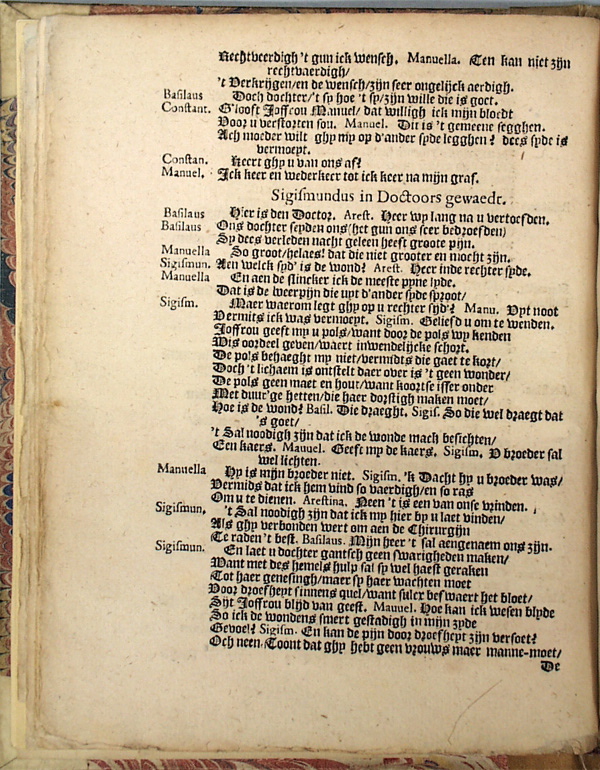 Rechtveerdigh 't gun ick wensch. Manuella. Ten kan niet zijn
rechtvaerdigh/
't Verkrijgen/en de wensch/zijn seer ongelijck aerdigh.
Basilaus Doch dochter/'t sy hoe 't sy/zijn wille die is goet.
Constant. G'looft Joffrou Manuel/ dat willigh ick mijn bloedt
Voor u verstorten sou. Manuel. Dit is 't gemeene segghen.
Ach moeder wilt ghy my op d'ander syde legghen? dees syde is
vermoeyt.
Constan. Keert ghy u van ons af?
Manuel. Ick keer en wederkeer tot ick keer na mijn graf.
Sigismundus in Doctoors gewaedt.
Basilaus Hier is den Doctor. Arest. Heer wy lang na u vertoefden.
Basilaus Ons dochter seyden ons (het gun ons seer bedroefden)
Sy dees verleden nacht geleen heeft groote pijn.
Manuella So groot/helaes! dat die niet grooter en mocht zijn.
Sigismun. Aen welck syd' is de wond? Arest. Heer inde rechter syde.
Manuella En aen de slincker ick de meeste pyne lyde.
Dat is de weerpijn die uyt d'ander syde sproot/
Sigism. Maer waerom legt ghy op u rechter sijd? Manu. Uyt noot
Vermits ick was vermoeyt. Sigism. Geliefd u om te wenden.
Joffrou geeft my u pols/want door de pols wy kenden
Wis oordeel geven/waert inwendelijcke schort.
De pols behaeght my niet/vermidts die gaet te kort/
Doch 't lichaem is ontstelt daer over is 't geen wonder/
De pols geen maet en hout/want koortse isser onder
Met duur'ge hetten/die haer dorstigh maken moet/
Hoe is de wond? Basil. Die draeght. Sigis. So die wel draegt dat
's goet/
't Sal noodigh zijn dat ick de wonde mach besichten/
Een kaers. Mauuel. Geeft my de kaers. Sigism. U broeder sal
wel lichten.
Manuella Hy is mijn broeder niet. Sigism. 'k Dacht hy u broeder was/
Vermids dat ick hem vind so vaerdigh/en so ras
Om u te dienen. Arestina. Neen 't is een van onse vrinden.
Sigismun. 't Sal noodigh zijn dat ick my hier by u laet vinden/
Als ghy verbonden wert om aen de Chirurgijn
Te raden 't best. Basilaus. Mijn heer 't sal aengenaem ons zijn.
Sigismun. En laet u dochter gantsch geen swarigheden maken/
Want met des hemels hulp sal sy wel haest geraken
Tot haer genesingh/maer sy haer wachten moet
Voor droefheyt sinnens quel/want sulex beswaert het bloet/
Sijt Joffrou blijd van geest. Mauuel. Hoe kan ick wesen blyde
So ick de wondens smert gestadigh in mijn zyde
Gevoel? Sigism. En kan de pijn door droefheyt zijn versoet?
Och neen. Toont dat ghy hebt geen vrouws maer manne-moet/
De